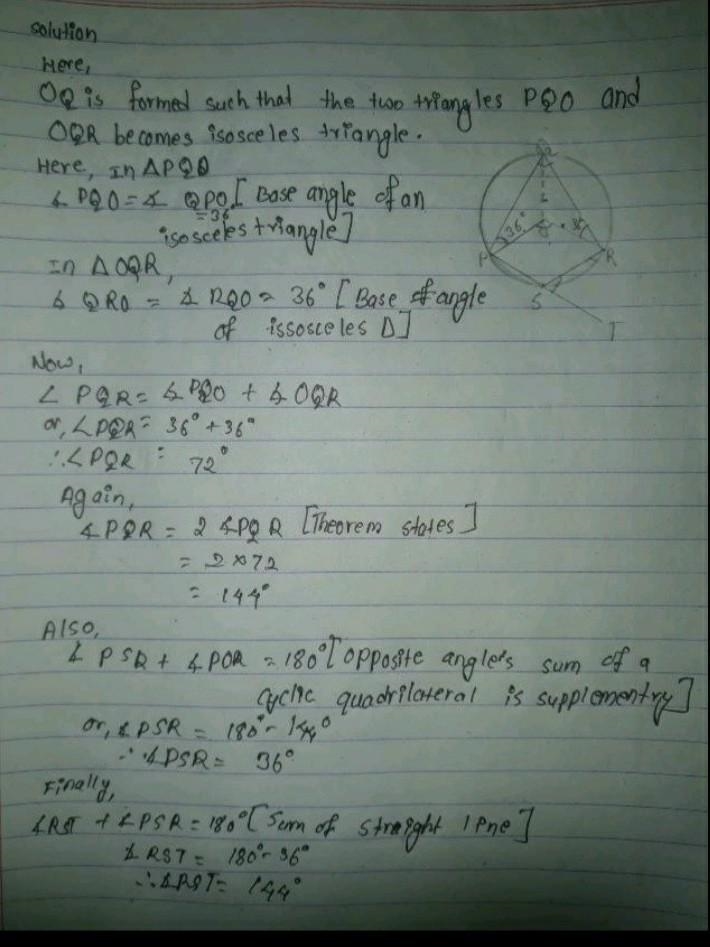 Solution
Here,
OQ is formed such that the two triangles PQO and
OQR becomes isosceles triangle.
Here, In ΔPQO
∡ PQO = ∡ QPO [Base angle of an
= 36
isosceles triangle]
In ΔOQR,
∡ QRO = ∡ RQO = 36° [Base of angle
of issosceles Δ]
Now,
∠ PQR = ∡ PQO + ∡ OQR
or, ∠PQR = 36° + 36°
∴ ∠PQR = 72°
Again,
∡PQR = 2 ∡PQR [Theorem states]
= 2 × 72
= 144°
Also,
∡ PSR + ∡ POR = 180° [opposite angle's sum of a
cyclic quadrilateral is supplementry]
or, ∡PSR = 180° - 144°
∴ ∡PSR = 36°
Finally,
∡RST + ∡PSR = 180° [Sum of straight line]
∡ RST = 180° - 36°
∴ ∡RST = 144°
Q
36°
36
P
R
S
T